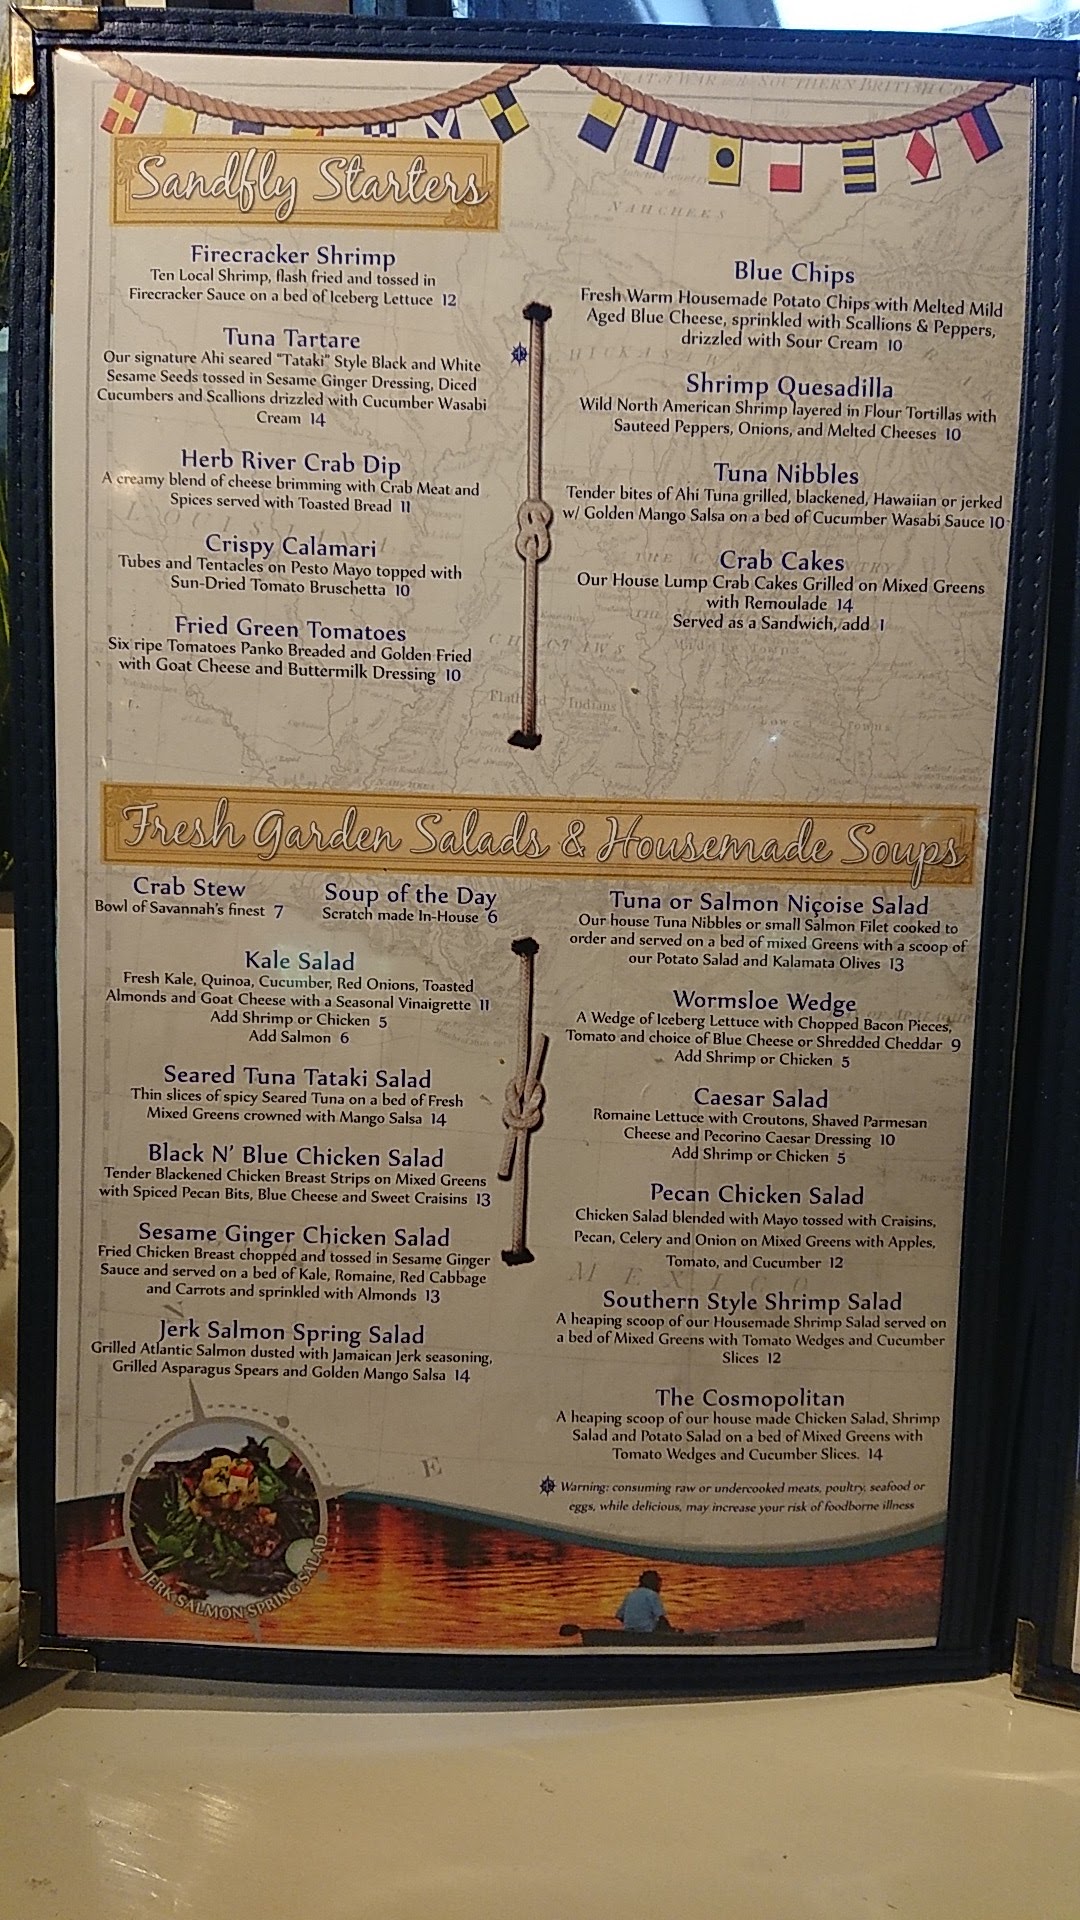 Sandfly Starters
Firecracker Shrimp
Ten Local Shrimp, flash fried and tossed in
Firecracker Sauce on a bed of Iceberg Lettuce 12
Tuna Tartare
Our signature Ahi seared "Tataki" Style Black and White
Sesame Seeds tossed in Sesame Ginger Dressing, Diced
Cucumbers and Scallions drizzled with Cucumber Wasabi
Cream 14
Herb River Crab Dip
A creamy blend of cheese brimming with Crab Meat and
Spices served with Toasted Bread 11
Crispy Calamari
Tubes and Tentacles on Pesto Mayo topped with
Sun-Dried Tomato Bruschetta 10
Fried Green Tomatoes
Six ripe Tomatoes Panko Breaded and Golden Fried
with Goat Cheese and Buttermilk Dressing 10
Blue Chips
Fresh Warm Housemade Potato Chips with Melted Mild
Aged Blue Cheese, sprinkled with Scallions & Peppers,
drizzled with Sour Cream 10
Shrimp Quesadilla
Wild North American Shrimp layered in Flour Tortillas with
Sauteed Peppers, Onions, and Melted Cheeses 10
Tuna Nibbles
Tender bites of Ahi Tuna grilled, blackened, Hawaiian or jerked
w/ Golden Mango Salsa on a bed of Cucumber Wasabi Sauce 10
Crab Cakes
Our House Lump Crab Cakes Grilled on Mixed Greens
with Remoulade 14
Served as a Sandwich, add 1
Fresh Garden Salads & Housemade Soups
Crab Stew
Bowl of Savannah's finest 7
Soup of the Day
Scratch made In-House 6
Kale Salad
Fresh Kale, Quinoa, Cucumber, Red Onions, Toasted
Almonds and Goat Cheese with a Seasonal Vinaigrette 11
Add Shrimp or Chicken 5
Add Salmon 6
Seared Tuna Tataki Salad
Thin slices of spicy Seared Tuna on a bed of Fresh
Mixed Greens crowned with Mango Salsa 14
Black N' Blue Chicken Salad
Tender Blackened Chicken Breast Strips on Mixed Greens
with Spiced Pecan Bits, Blue Cheese and Sweet Craisins 13
Sesame Ginger Chicken Salad
Fried Chicken Breast chopped and tossed in Sesame Ginger
Sauce and served on a bed of Kale, Romaine, Red Cabbage
and Carrots and sprinkled with Almonds 13
Jerk Salmon Spring Salad
Grilled Atlantic Salmon dusted with Jamaican Jerk seasoning,
Grilled Asparagus Spears and Golden Mango Salsa 14
Tuna or Salmon Niçoise Salad
Our house Tuna Nibbles or small Salmon Filet cooked to
order and served on a bed of mixed Greens with a scoop of
our Potato Salad and Kalamata Olives 13
Wormsloe Wedge
A Wedge of Iceberg Lettuce with Chopped Bacon Pieces,
Tomato and choice of Blue Cheese or Shredded Cheddar 9
Add Shrimp or Chicken 5
Caesar Salad
Romaine Lettuce with Croutons, Shaved Parmesan
Cheese and Pecorino Caesar Dressing 10
Add Shrimp or Chicken 5
Pecan Chicken Salad
Chicken Salad blended with Mayo tossed with Craisins,
Pecan, Celery and Onion on Mixed Greens with Apples,
Tomato, and Cucumber 12
Southern Style Shrimp Salad
A heaping scoop of our Housemade Shrimp Salad served on
a bed of Mixed Greens with Tomato Wedges and Cucumber
Slices 12
The Cosmopolitan
A heaping scoop of our house made Chicken Salad, Shrimp
Salad and Potato Salad on a bed of Mixed Greens with
Tomato Wedges and Cucumber Slices. 14
Warning: consuming raw or undercooked meats, poultry, seafood or
eggs, while delicious, may increase your risk of foodborne illness
JERK SALMON SPRING SALAD